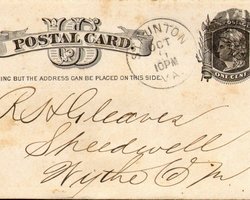 POSTAL CARD.
STAUNTON
OCT
10PM
VA
ONE CENT
ING BUT THE ADDRESS CAN BE PLACED ON THIS SIDE.
R S H Gleaves
Speedwell
Wythe Co